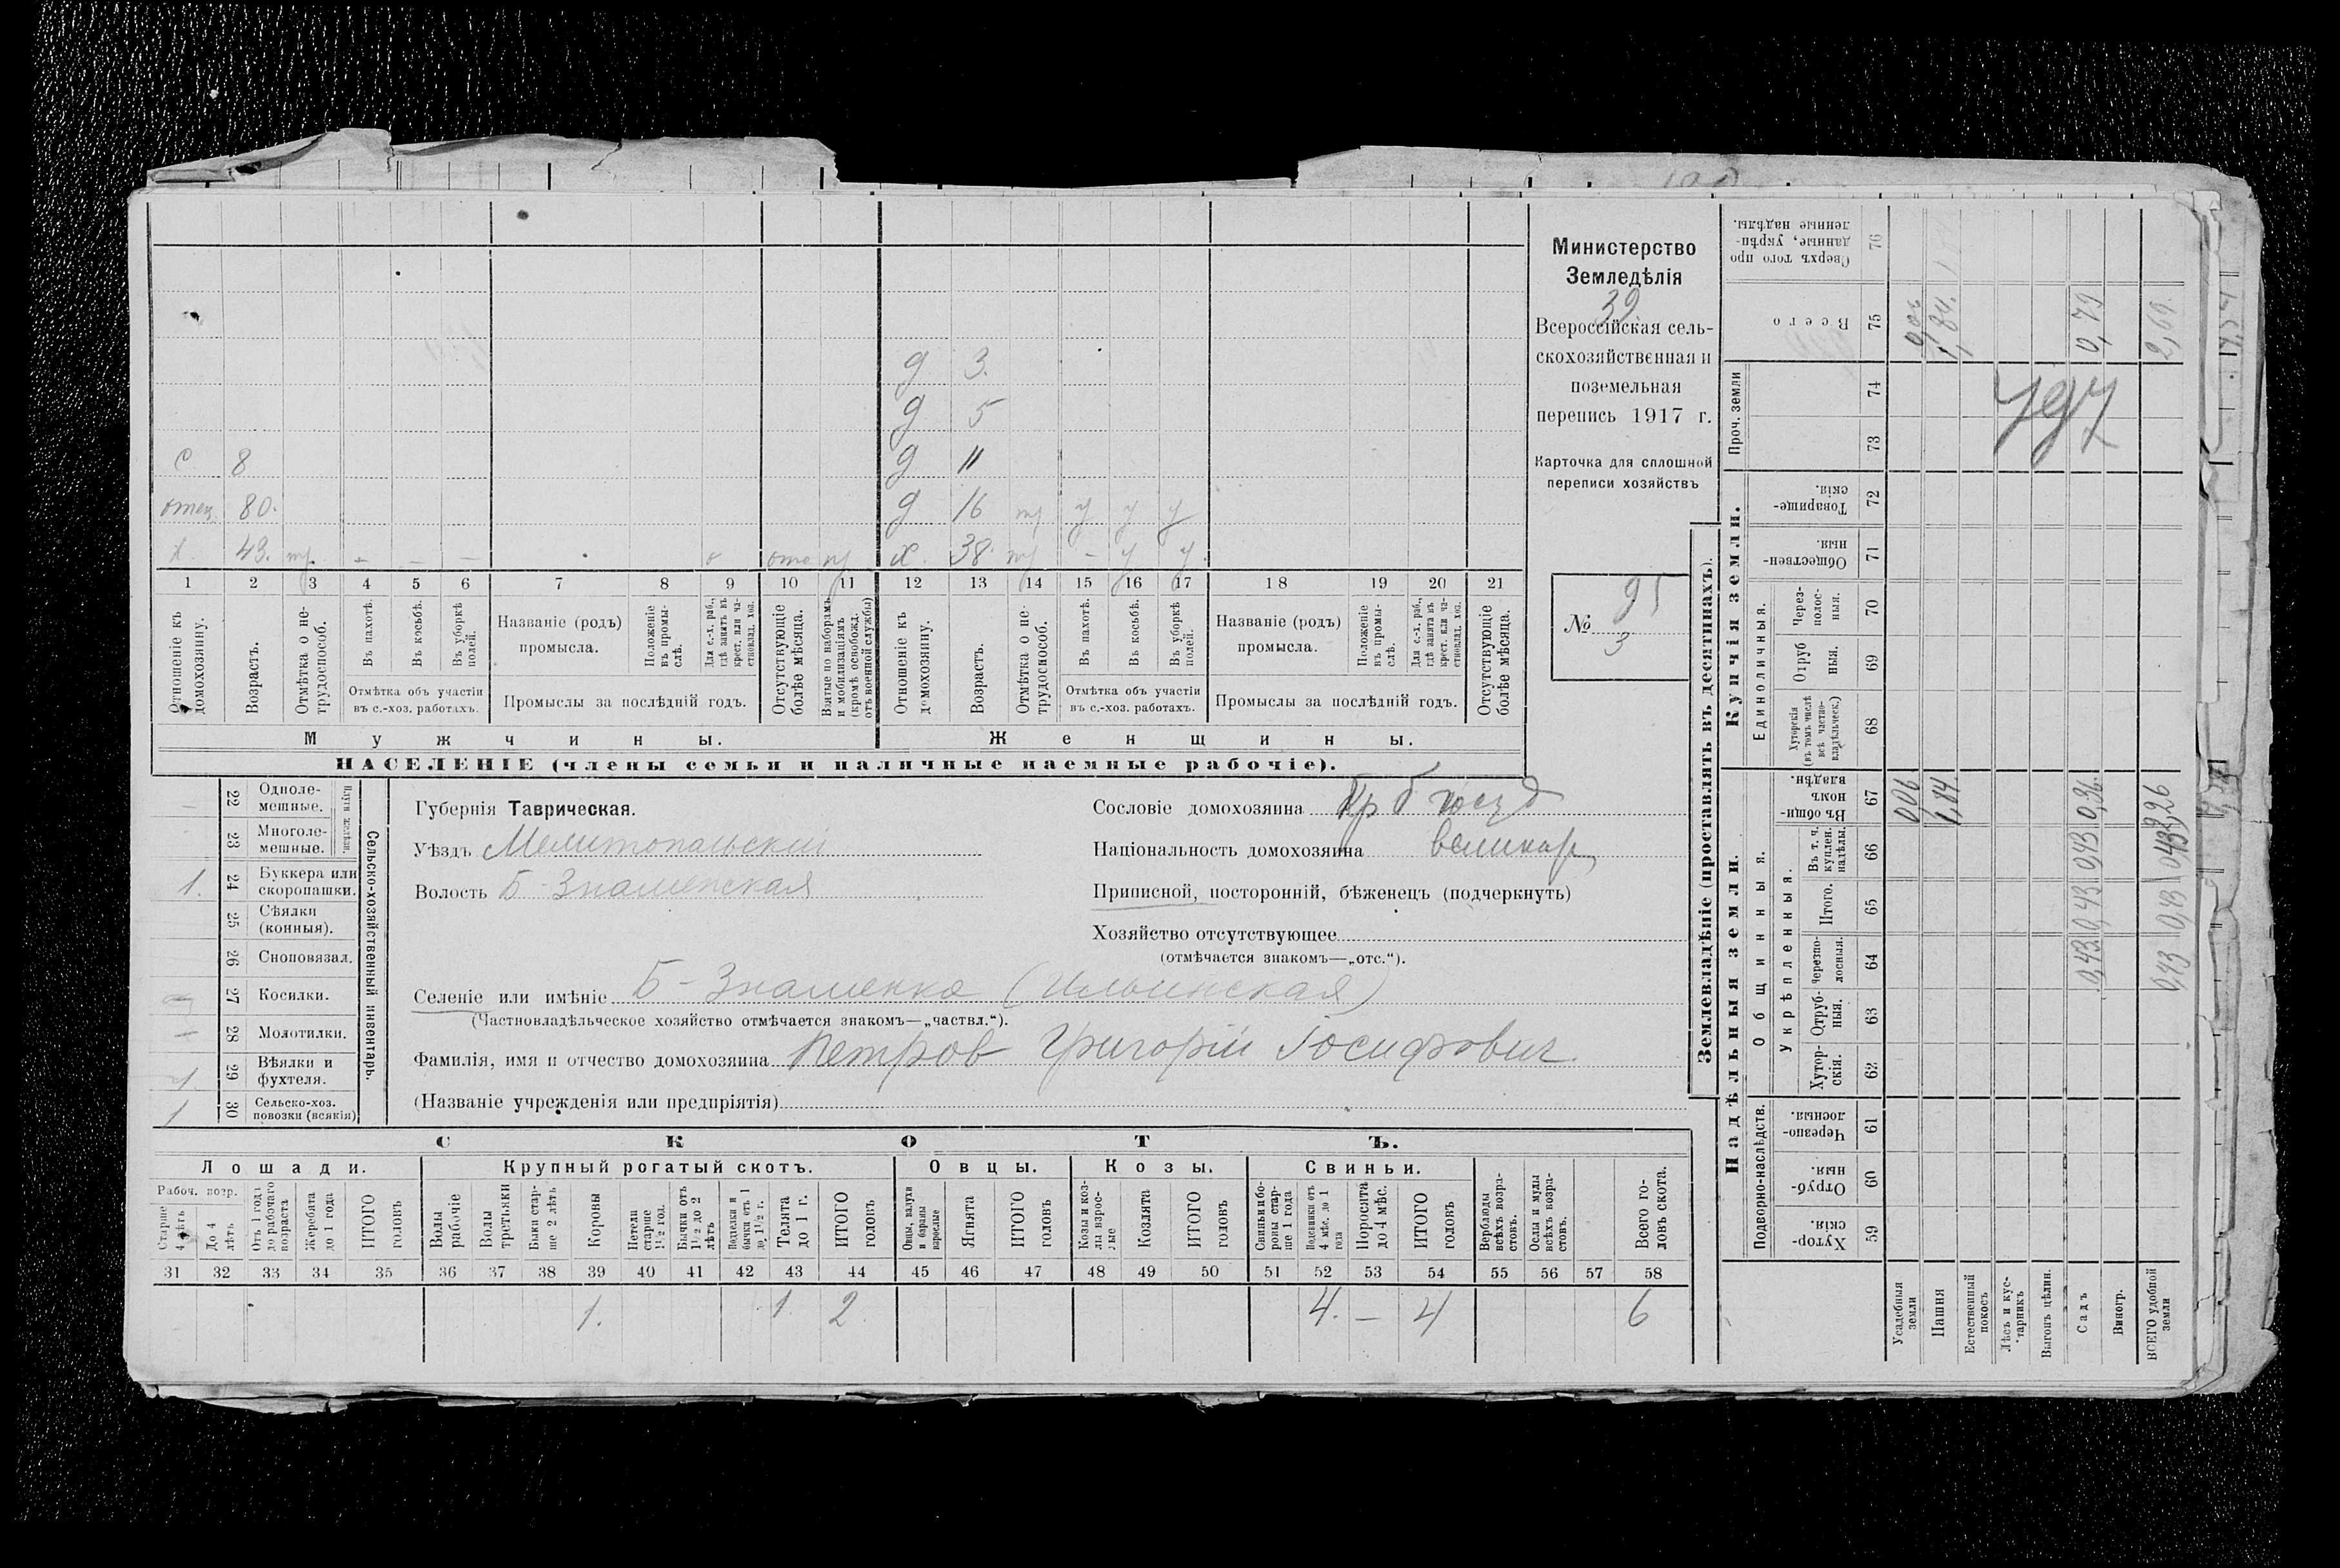 Министерство
Земледѣлія
39
Всероссійская сель-
скохозяйственная и
поземельная
перепись 1917 г.
Карточка для сплошной
переписи хозяйствъ
№ 91
3
д 3.
д 5
с 8 д 11
отец. 80. д 16 у у у
х. 43. х. 38. - у у
1 2 3 4 5 6 7 8 9 10 11 12 13 14 15 16 17 18 19 20 21
Отношеніе къ домохозяину.
Возрастъ.
Отмѣтка о не-трудоспособ.
Въ пахотѣ.
Въ косьбѣ.
Въ уборкѣ полей.
Отмѣтка объ участіи
въ с.-хоз. работахъ.
Названіе (родъ)
промысла.
Положеніе въ промы-слѣ.
Для с.-х. раб., гдѣ занятъ въ крест. или ча-стновлад. хоз.
Промыслы за послѣдній годъ.
Отсутствующіе болѣе мѣсяца.
Взятые по наборамъ и мобилизаціямъ (кромѣ освобожд. отъ военной службы)
Отношеніе къ домохозяину.
Возрастъ.
Отмѣтка о не-трудоспособ.
Въ пахотѣ.
Въ косьбѣ.
Въ уборкѣ полей.
Отмѣтка объ участіи
въ с.-хоз. работахъ.
Названіе (родъ)
промысла.
Положеніе въ промы-слѣ.
Для с.-х. раб., гдѣ занята въ крест. или ча-стновлад. хоз.
Промыслы за послѣдній годъ.
Отсутствующіе болѣе мѣсяца.
Мужчины.
Женщины.
НАСЕЛЕНІЕ (члены семьи и наличные наемные рабочіе).
Сельско-хозяйственный инвентарь.
Плуги желѣзн.
22 Одноле-мешные.
23 Многоле-мешные.
1. 24 Буккера или скоропашки.
25 Сѣялки (конныя).
26 Сноповязал.
27 Косилки.
28 Молотилки.
1 29 Вѣялки и фухтеля.
1 30 Сельско-хоз. повозки (всякія)
Губернія Таврическая.
Уѣздъ Мелитопольскій
Волость Б-Знаменская
Сословіе домохозяина Кр б
Національность домохозяина великор
Приписной, посторонній, бѣженецъ (подчеркнуть)
Хозяйство отсутствующее
(отмѣчается знакомъ—„отс.“).
Селеніе или имѣніе Б-Знаменка (Ильинская)
(Частновладѣльческое хозяйство отмѣчается знакомъ—„частвл.“).
Фамилія, имя и отчество домохозяина Петров Григорій Іосифович.
(Названіе учрежденія или предпріятія)
СКОТЪ.
Лошади. Крупный рогатый скотъ. Овцы. Козы. Свиньи.
Рабоч. возр.
Старше 4 лѣтъ
До 4 лѣтъ
Отъ 1 года до рабочаго возраста
Жеребята до 1 года
ИТОГО головъ
Волы рабочіе
Волы третьяки
Быки стар-ше 2 лѣтъ
Коровы
Нетели старше 1½ год.
Бычки отъ 1½ до 2 лѣтъ
Подтелки и бычки отъ 1 до 1½ г.
Телята до 1 г.
ИТОГО головъ
Овцы, валухи и бараны взрослые
Ягнята
ИТОГО головъ
Козы и коз-лы взрос-лые
Козлята
ИТОГО головъ
Свиньи и бо-ровы стар-ше 1 года
Подсвинки отъ 4 мѣс. до 1 года
Поросята до 4 мѣс.
ИТОГО головъ
Верблюды всѣхъ возра-стовъ.
Ослы и мулы всѣхъ возра-стовъ.
Всего го-ловъ скота.
31 32 33 34 35 36 37 38 39 40 41 42 43 44 45 46 47 48 49 50 51 52 53 54 55 56 57 58
1. 1. 2 4. — 4 6
Землевладѣніе (проставлять въ десятинахъ).
Надѣльныя земли.
Купчія земли.
Проч. земли
Подворно-наслѣдств.
Общинныя.
Укрѣпленныя.
Единоличныя.
Хутор-скія. 59
Отруб-ныя. 60
Черезпо-лосныя. 61
Хутор-скія. 62
Отруб-ныя. 63
Черезпо-лосныя. 64
Итого. 65
Въ т. ч. куплен. надѣлы. 66
Въ общи-номъ владѣн. 67
Хуторскія (въ томъ числѣ всѣ частно-владѣльческ.) 68
Отруб ныя. 69
Через-полос-ныя. 70
Обществен-ныя. 71
Товарище-скія. 72
73
74
Всего 75
Сверхъ того про данные, укрѣп-ленные надѣлы. 76
Усадебныя земли 0,06 0,06
Пашня 1,84 1,84.
Естественный покосъ
Лѣсъ и кус-тарникъ
Выгонъ цѣлин.
Садъ 0,43 0,43 0,43 0,36. 0,79
Виногр.
ВСЕГО удобной земли 0,43 0,43 0,43 2,26 2,69.